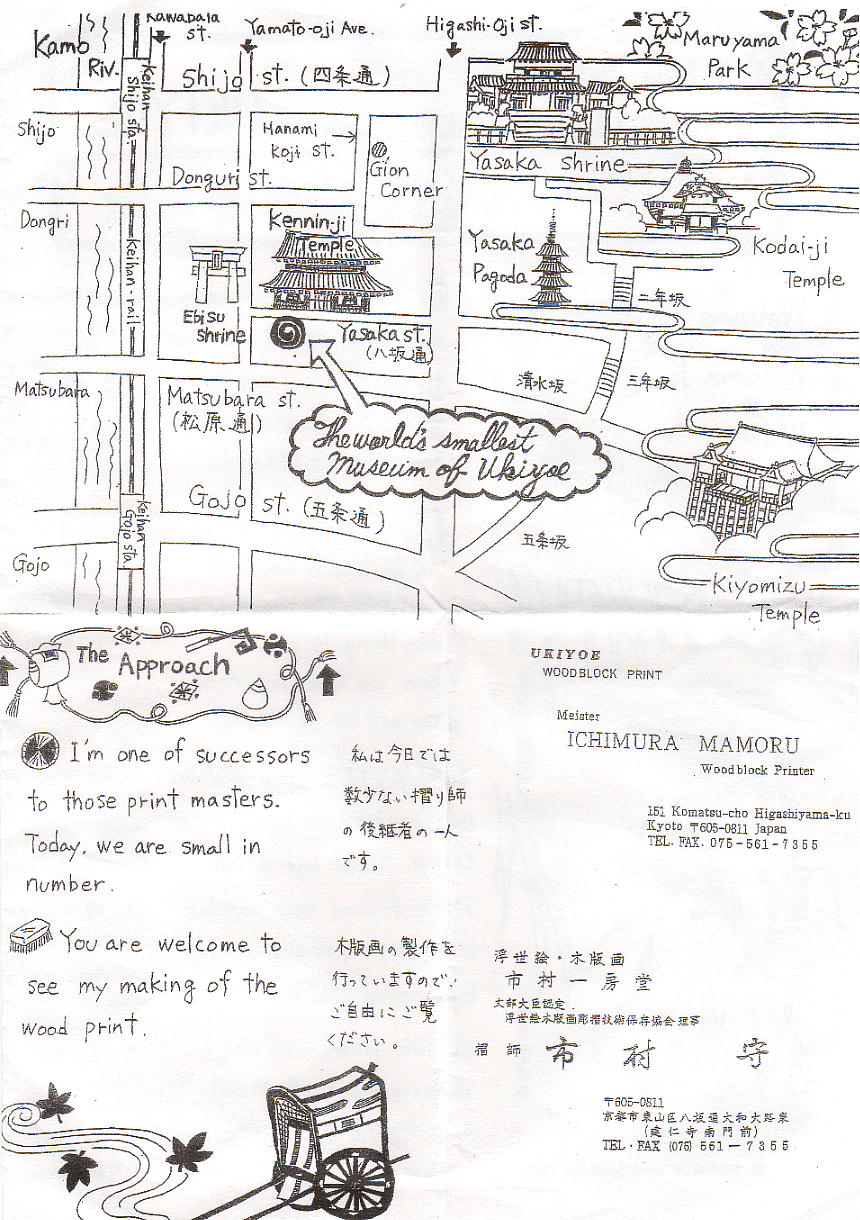 Kamo
Riv.
Kawabata
st.
Yamato-oji Ave.
Higashi-Oji st.
Maruyama
Park
Keihan
Shijo sta.
Shijo st. (四条通)
Shijo
Hanami
Koji st.
Gion
Corner
Yasaka Shrine
Donguri st.
Dongri
Kennin-ji
Temple
Yasaka
Pagoda
Kodai-ji
Temple
Keihan-rail
Ebisu
Shrine
二年坂
Yasaka st.
(八坂通)
清水坂
三年坂
Matsubara
Matsubara st.
(松原通)
The world's smallest
Museum of Ukiyoe
Gojo st. (五条通)
Keihan
Gojo sta.
五条坂
Gojo
Kiyomizu
Temple
The Approach
I'm one of successors
to those print masters.
Today, we are small in
number.
私は今日では
数少ない摺り師
の後継者の一人
です。
You are welcome to
see my making of the
wood print.
木版画の製作を
行っていますので、
ご自由にご覧
ください。
UKIYOE
WOODBLOCK PRINT
Meister
ICHIMURA MAMORU
Woodblock Printer
151 Komatsu-cho Higashiyama-ku
Kyoto 〒605-0811 Japan
TEL. FAX. 075-561-7355
浮世絵・木版画
市村一房堂
文部大臣認定
浮世絵木版画彫摺技術保存協会理事
摺師 市村 守
〒605-0811
京都市東山区八坂通大和大路東
(建仁寺南門前)
TEL・FAX (075) 561-7355